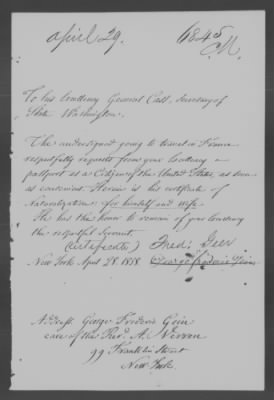 April 29.
6845
C.N.
To his Excellency General Cass, Secretary of
State Washington.
The undersigned going to travel in France
respectfully requests from your Excellency a
passport as a Citizen of the United States, as soon
as convenient. Herein is his certificate of
Naturalization: for himself and wife.
He has the honor to remain of your Excellency
the respectful Servant.
(Certificate) Fred. Geer
New York April 28. 1858 George Frederic
Address George Frederic
care of the Rev. A.
99 Franklin Street
New York.